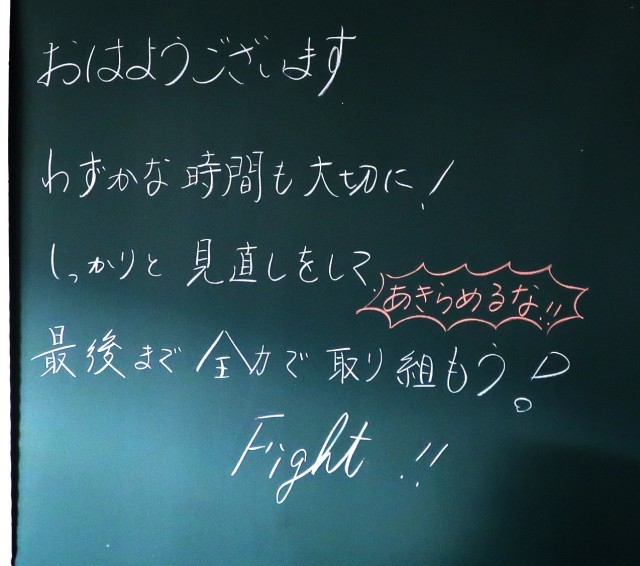 おはようございます
わずかな時間も大切に!
しっかりと見直しをして、
あきらめるな!!
最後まで全力で取り組もう!
Fight!!